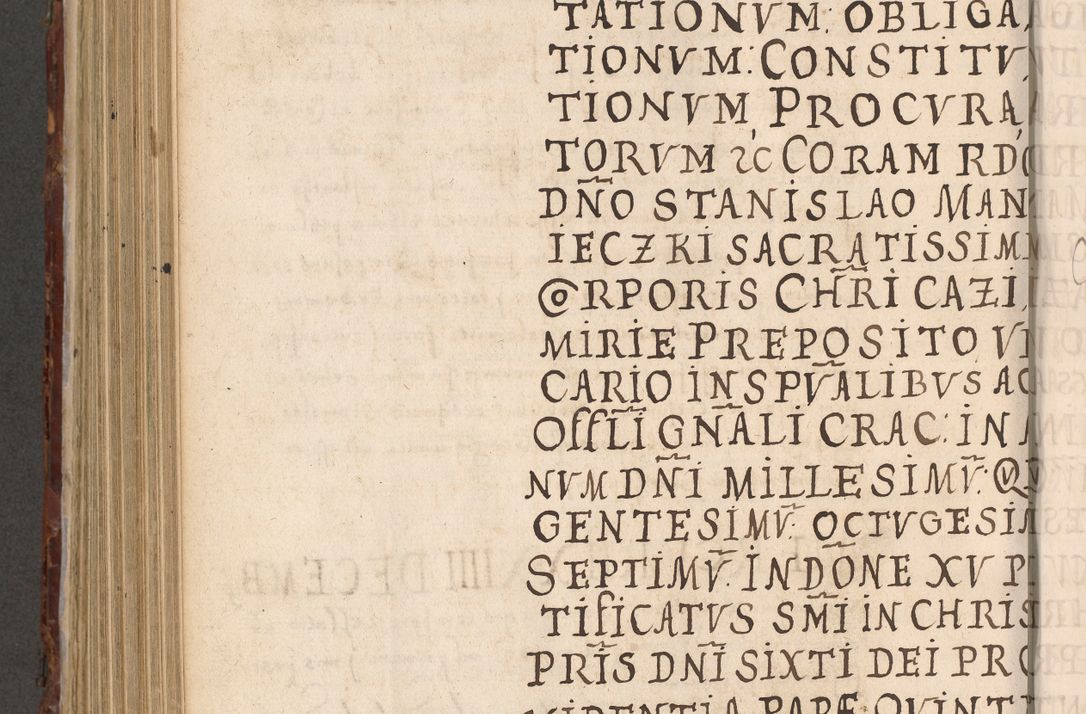 TATIONVM: OBLIGA
TIONVM: CONSTITV
TIONVM, PROCVRA,
TORVM ꝛc CORAM RD
DÑO STANISLAO MAN
IECZKI SACRATISSIM
CORPORIS CHR̃I CAZI,
MIRIE PREPOSITO VI
CARIO IN SPṼALIBVS AC
OffLĨ GÑALI CRAC: IN
NVM DÑI MILLESIMṼ: QV
GENTESIMV: OCTVGESI
SEPTIMṼ. INDÕNE XV P
TIfICATVS SM̃I IN CHRIS
PRĨS DÑI SIXTI DEI PRO
VIDENTIA PAPÆ QVINTI